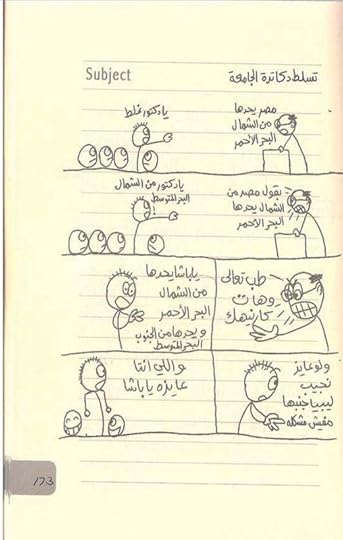 Subject
تسلط دكاترة الجامعة
مصر يحدها
من الشمال
البحر الأحمر
يا دكتور غلط
بقول مصر من
الشمال يحدها
البحر الأحمر
يا دكتور من الشمال
البحر المتوسط
طب تعالى
وهات
كارنيهك
يا باشا يحدها
من الشمال
البحر الأحمر
و يحدها من الجنوب
البحر المتوسط
ولو عايز
نجيب
ليبيا جنبها
مفيش مشكله
واللي انتا
عايزه يا باشا
173